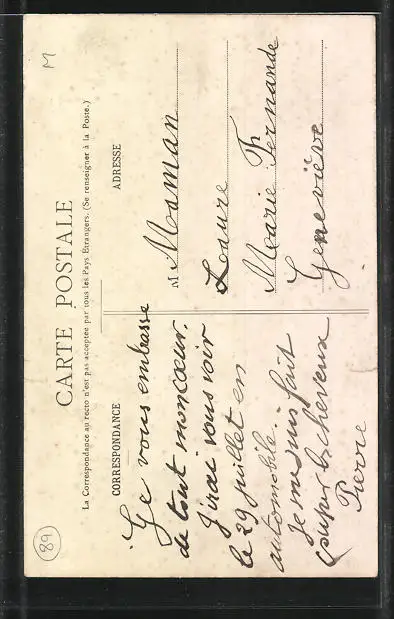 M
89
CARTE POSTALE
La Correspondance au recto n'est pas acceptée par tous les Pays Étrangers. (Se renseigner à la Poste.)
CORRESPONDANCE
Je vous embrasse
de tout mon cœur.
J'irai vous voir
le 29 juillet en
automobile.
Je me suis fait
couper les cheveux
Pierre
ADRESSE
M Maman
Laure
Marie Fernande
Geneviève